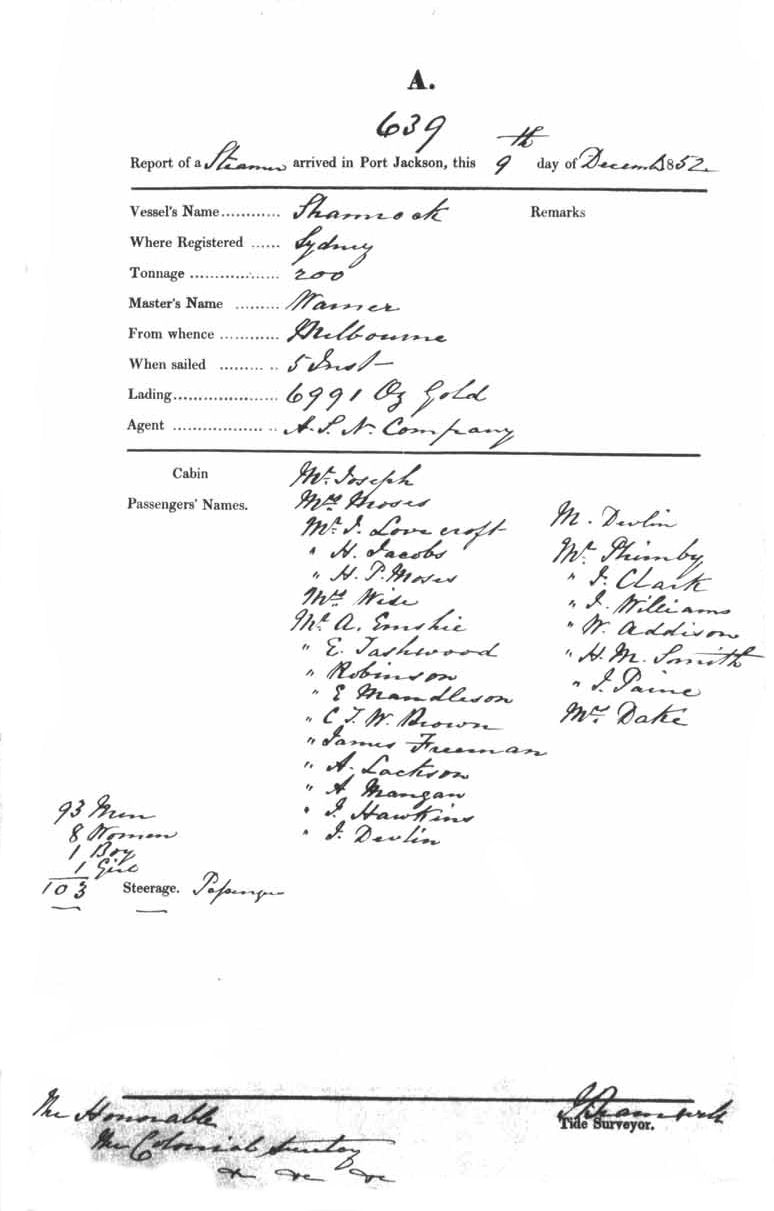 A.
639
Report of a Steamer arrived in Port Jackson, this 9th day of December 1852
Vessel's Name............ Shamrock Remarks
Where Registered ...... Sydney
Tonnage .................. 200
Master's Name ......... Warner
From whence ............ Melbourne
When sailed ........... 5 Inst
Lading..................... 6991 Oz Gold
Agent .................... A. S. N. Company
Cabin
Passengers' Names.
Mr. Joseph
Mrs Moses
Mr. J. Lovecroft
" H. Jacobs
" H. P. Moses
Mrs Wise
Mr A. Emshie
" E. Tashwood
" Robinson
" E Mandleson
" C J. W. Brown
" James Freeman
" A. Lackson
" A Mangan
" J. Hawkins
" J. Devlin
M. Devlin
Mr Thimby
" J. Clark
" J. Williams
" W. Addison
" H. M. Smith
" J. Paine
Mrs Dake
93 Men
8 Women
1 Boy
1 Girl
103 Steerage. Passengers
The Honorable
The Colonial Secretary
&c &c &c
Tide Surveyor.